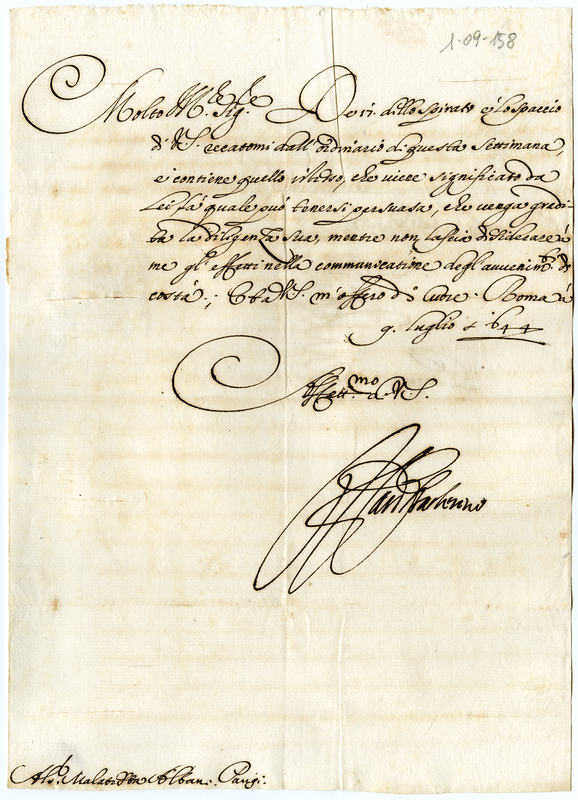 1-09-158
Molto Ill.re Sig.re De 17. dello spirato è lo spaccio
di V.S. recatomi dall'ordinario di questa settimana,
e contiene quello istesso, che viene significato da
Lei, la quale può tenersi persuasa, che venga gradi-
ta la diligenza sua, mentre non lascio desiderare à
me gl'effetti nella communicatione degl'avvenim.ti di
costà; Et à V.S. m'offero di cuore. Roma à
9. luglio 1644
Affett.mo di V.S.
Barberino
Malatesta Albani. Parigi.